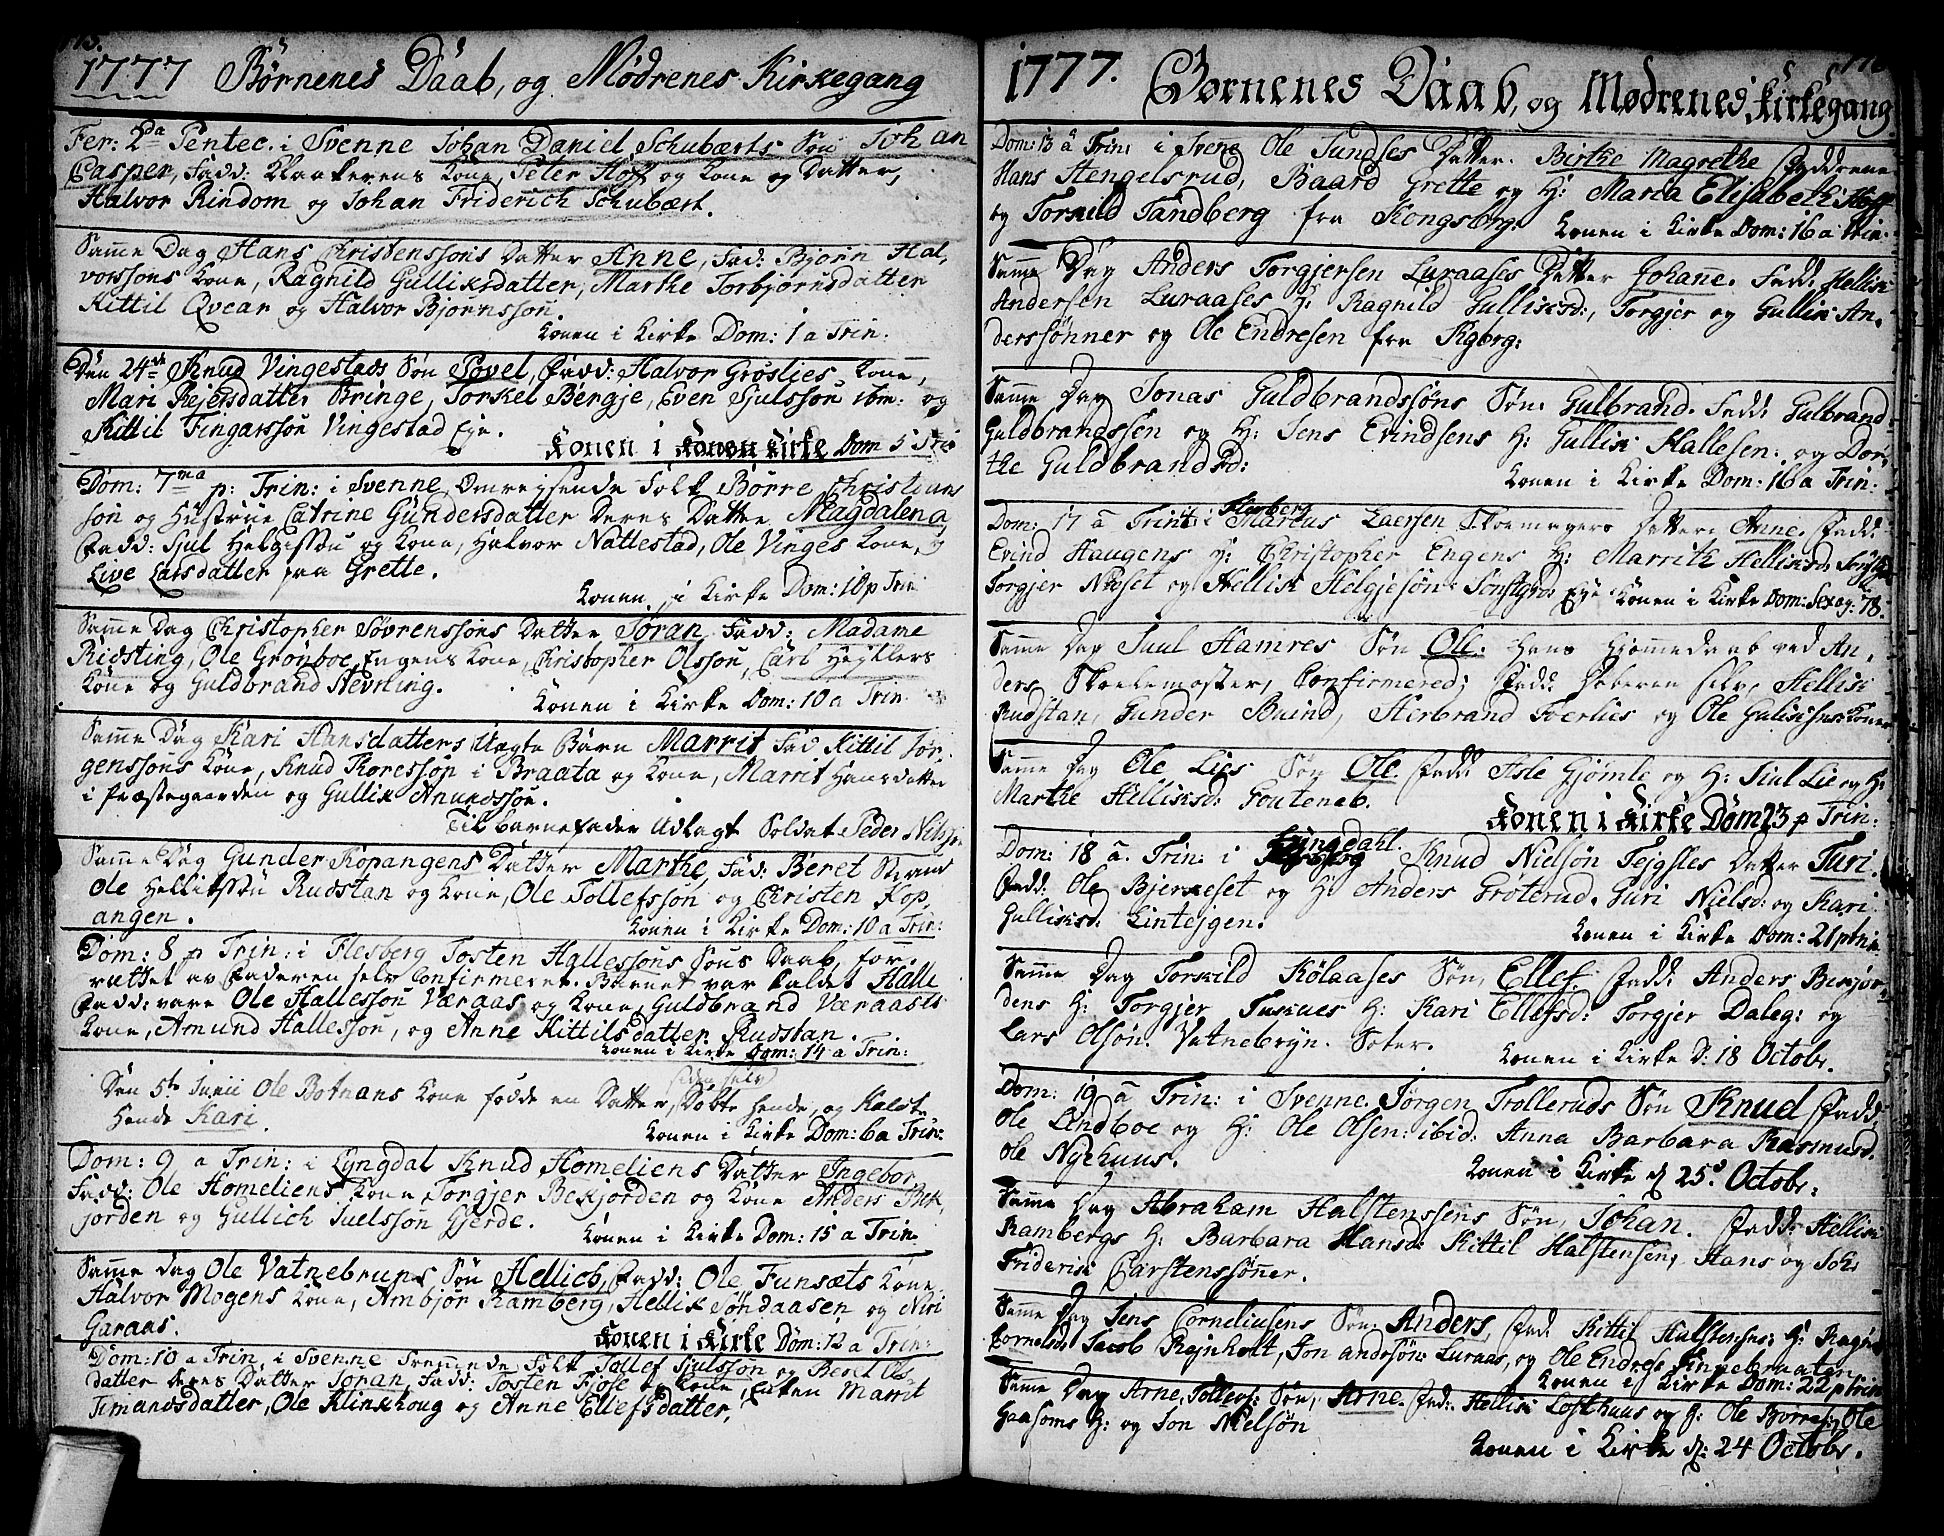 1777 Børnenes Daab, og Mødrenes Kirkegang
Fer: 2da Pentec. i Svenne Johan Daniel Schubærts Søn Johan
Casper, Fadd: Kone, Peter Hoff og Kone og Datter,
Halvor Rindom og Johan Friderich Schubært.
Samme Dag Hans Christenssøns Datter Anne, Fad: Bjørn Hal,
vorssøns Kone, Ragnild Gulliksdatter, Marthe Torbjørnsdatter
Kittil Qvear og Halvor Bjørnssøn.
Konen i Kirke Dom: 1 a Trin:
Den 24de Knud Vingestads Søn Povel, Fadd: Halvor Grøslies Kone,
Mari Rejersdatter Bringe, Torkel Bergje, Even Sjulssøn ibm: og
Kittil Fingarssøn Vingestad Eje.
Konen i Konen Kirke Dom 5 Trin
Dom: 7ma p: Trin: i Svenne Omrejsende Folk Børre Christians
søn og Hustrue Catrine Gundersdatter Deres Datter Magdalena
Fadd: Sjul Helgissøn og Kone, Halvor Nattestad, Ole Vinges Kone, og
Live Larsdatter paa Grette.
Konen i Kirke Dom: 10 p Trin
Samme Dag Christopher Søvrenssøns Datter Søran Fadd: Madame
Ridsting, Ole Grønboe, Engens Kone, Christopher Olssøn, Carl Heyllers
Kone og Guldbrand Nevning.
Konen i Kirke Dom: 10 a Trin
Samme Dag Kari Hansdatters Uægte Barn Marrit Fad Kittil Jør,
genssøns Kone, Knud Toressøn i Braata og Kone, Marrit Hansdatter
i Præstegaarden og Gullik Anundssøn.
Til Barnefader Udlagt Soldat Peder Nilssøn
Samme Dag Gunder Kopangens Datter Marthe, Fad: Beret Strand
Ole Helliksøn Rudstan og Kone, Ole Tollefssøn og Christen Kop,
angen.
Konen i Kirke Dom: 10 a Trin:
Dom: 8 p Trin: i Flesberg Tosten Hallessøns Søns Daab, for,
rættet av Faderen selv Confirmeret. Barnet var kaldet Halle
Fadd: vare Ole Hallessøn Væraas og Kone, Guldbrand Væraases
Kone, Amund Hallessøn, og Anne Kittilsdatter Rudstan.
Konen i Kirke Dom: 14 a Trin:
Den 5te Junii Ole Bothans Kone fødde en Datter, Døbte hende, og Kaldte
selv
Hende Kari.
Konen i Kirke Dom: 6 a Trin:
Dom: 9 a Trin: i Lyngdal Knud Homeliens Datter Ingebor,
Fadd: Ole Homeliens Kone Torgjer Bekjorden og Kone Anders Bek,
jorden og Gullich Juelssøn Gjerde.
Konen i Kirke Dom: 15 a Trin.
Samme dag Ole Vatnebryns Søn Hellich, Fadd: Ole Funsæts Kone,
Halvor Mogens Kone, Ambjør Ramberg, Hellik Søndaasen og Niri
Garaas.
Konen i Kirke Dom: 12 a Trin:
Dom: 10 a Trin. i Svenne Fremmede Folk Tollef Sjulssøn og Beret Ols-
datter deres Datter Søran, Fadd: Tosten Fjøse og Kone, Enken Marrit
Timandsdatter, Ole Klinkhoug og Anne Ellefsdatter,
1777. Børnenes Daab, og Mødrenes Kirkegang
Dom: 13 a Trin: i Svene Ole Sundses Datter. Birthe Magrethe Faddrene
Hans Stengelsrud, Baard Grette og H: Maria Elisabeth Hoff
og Torkild Tandberg fra Kongsberg.
Konen i Kirke Dom: 16 a Trin.
Samme Dag Anders Torgjersen Luraases Datter Johane. Fadd: Hellik
Andersen Luraases H: Ragnild Gulliksd:, Torgjer og Gullik An,
derssønner og Ole Endresen fra Kgbrg:
Samme Dag Jonas Guldbrandssøns Søn. Gulbrand. Fadd: Gulbrand
Guldbrandssen og H: Jens Evindsens H: Gullik Kallesen. og Dor,
the Guldbrandsd:
Konen i Kirke Dom: 16 a Trin:
Dom: 17 a Trin: i Flesberg Marcus Laersen Skomagers Datter: Anne. Fadd:
Evind Haugens H: Christopher Engens H: Marrith Helliksd:
Torgjer Næset og Hellik Helgjesøn Eje Konen i Kirke Dom: Sexag: 78.
Samme Dag Juul Hamres Søn Ole. hans Hjemmedaab ved An,
ders Skolemester, Confirmered; Fadd: selv, Hellik
Rudstan, Gunder Buind, Herbrand og Ole
Samme Dag Ole Lies Søn Ole. Fadd: Asle Gjømle og H: Siul Lie og H:
Marthe Helliksd:
Konen i Kirke Dom 23 p Trin:
Dom: 18 a. Trin: i Lyngdahl. Knud Nielsøn Datter Turi.
Fadd: Ole Bjerkeset og H: Anders Grøterud. Guri Nielsd: og Kari
Gulliksd: Lintejgen.
Konen i Kirke Dom: 21 p Trin
Samme Dag Torkild Kølaases Søn, Ellef. Fadd: Anders Bekjor,
dens H: Torgjer H: Kari Ellefsd: Torgjer Daleg: og
Lars Olsøn. Vatnebryn. Soter.
Konen i Kirke D: 18 Octobr.
Dom: 19 a Trin: i Svenne. Jørgen Trolleruds Søn Knud Fadd:
Ole Lindboe og H: Ole Olsen: ibid: Anna Barbara Rasmusd.
Ole Nyehuus.
Konen i Kirke d 25. Octobr:
Samme Dag Abraham Halstenssens Søn, Johan. Fadd: Hellik
Rambergs H: Barbara Hansd: Kittil Halstensen, Hans og Joh:
Friderik Carstenssønner.
Samme Dag Jens Corneliusens Søn: Anders, Fad: Kittil Halstensens H: Ragn
Cornelsd: Jacob Rejnholt, Jon andrsøn: Luraas, og Ole Endres:
Konen i Kirke Dom: 22 p Trin
Samme Dag Arne, Tollefs: Søn, Arne. Fad: Hellik Losthuus og H: Ole Børres: Ole
Gaasoms H: og Jon Nielsøn
Konen i Kirke d: 24 Octobr.